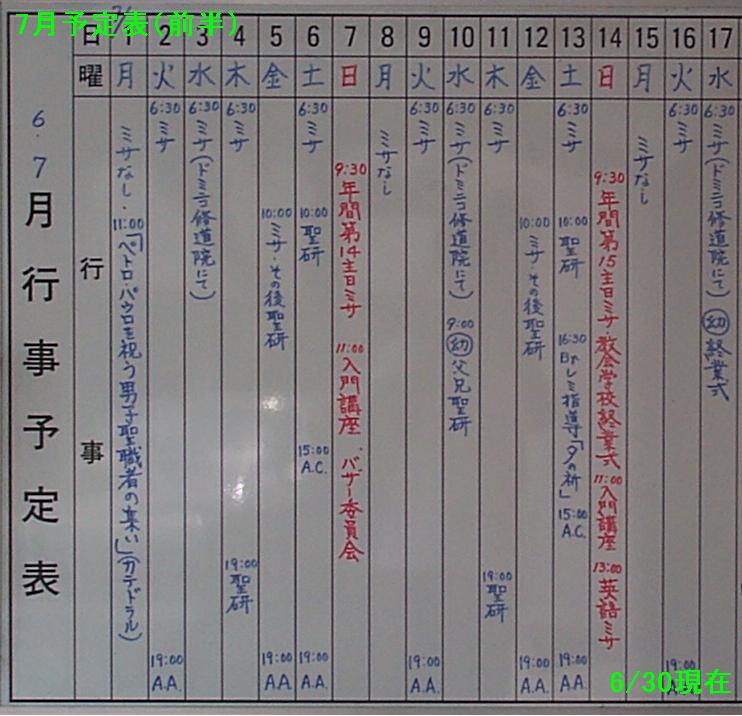 7月予定表(前半)
6.7月行事予定表
日
曜
行事
7/1
月
ミサなし・11:00「ペトロ・パウロを祝う男子聖職者の集い」(カテドラル)
2
火
6:30 ミサ
19:00 A.A.
3
水
6:30 ミサ(ドミニコ修道院にて)
4
木
6:30 ミサ
19:00 聖研
5
金
10:00 ミサ・その後聖研
19:00 A.A.
6
土
6:30 ミサ
10:00 聖研
15:00 A.C.
19:00 A.A.
7
日
9:30 年間第14主日ミサ
11:00 入門講座
バザー委員会
8
月
ミサなし
9
火
6:30 ミサ
19:00 A.A.
10
水
6:30 ミサ(ドミニコ修道院にて)
9:00 幼 父兄聖研
11
木
6:30 ミサ
19:00 聖研
12
金
10:00 ミサ・その後聖研
19:00 A.A.
13
土
6:30 ミサ
10:00 聖研
16:30 Br.レミ指導「夕の祈」
15:00 A.C.
19:00 A.A.
14
日
9:30 年間第15主日ミサ・教会学校終業式
11:00 入門講座
13:00 英語ミサ
15
月
ミサなし
16
火
6:30 ミサ
19:00 A.A.
17
水
6:30 ミサ(ドミニコ修道院にて)
幼 終業式
6/30現在